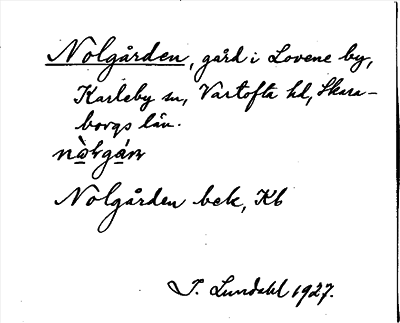 Nolgården, gård i Lovene by,
Karleby sn, Vartofta hd, Skara-
borgs län.
Nolgården bek, Kb
J. Lundahl 1927.